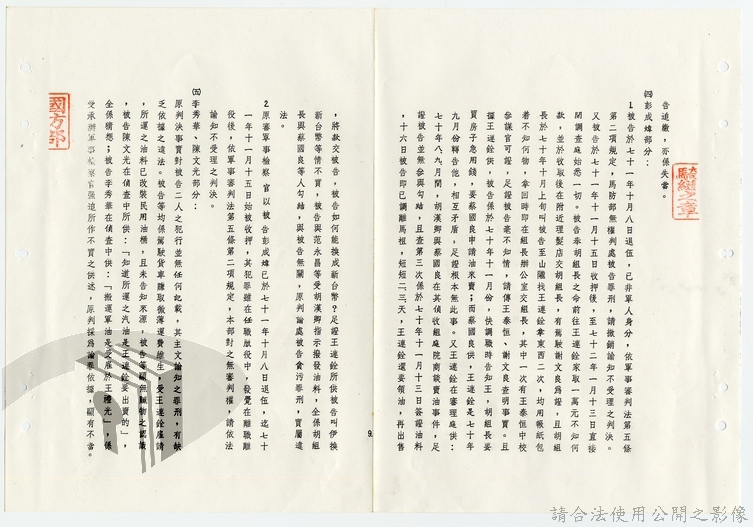 告追繳，亦係失當。
㈣彭成煒部分：
1.被告於七十一年十月八日退伍，已非軍人身分，依軍事審判法第五條
第二項規定，馬防部無權判處被告罪刑，請撤銷諭知不受理之判決。
又被告於七十一年十一月十五日收押後，至七十二年一月十三日直接
開調查庭始悉一切。被告奉胡組長之命前往王連銓家取一萬元不知何
款，並於收取後在附近理髮店交胡組長，有駕駛謝文良為證，且胡組
長於七十年十月上旬叫被告至山隴找王連銓拿東西二次，均用報紙包
著不知何物，拿回時即在組長辦公室交組長，其中一次有王泰恒中校
參謀官可證，足證被告毫不知情，請傳王泰恒、謝文良查明事實。且
據王連銓供，被告係於七十年十一月份，快調職時告知王，胡組長要
買房子急用錢，要蔡國良申請油來賣；而蔡國良供，王連銓是七十年
九月份轉告他，相互矛盾，足證根本無此事。又王連銓在審理庭供：
七十年八、九月間，胡漢卿與蔡國良在其偵收組庭院商談賣油事件，足
證被告並無參與勾結，且查第三次係於七十年十一月十三日簽證油料
，十六日被告即已調離馬祖，短短二、三天，王連銓還要領油，再出售
9
，將款交被告，被告如何能換成新台幣？足證王連銓所供被告叫伊換
新台幣等情不實，被告與范永昌等受胡漢卿指示撥發油料，全係胡組
長與蔡國良等人勾結，與被告無關，原判論處被告貪污罪刑，實屬違
法。
2.原審軍事檢察官以被告彭成煒已於七十一年十月八日退伍，迄七十
一年十一月十五日始被收押，其犯罪雖在任職服役中，發覺在離職離
役後，依軍事審判法第五條第二項規定，本部對之無審判權，請依法
諭知不受理之判決。
㈤李秀華、陳文光部分：
原判決事實對被告二人之犯行並無任何記載，其主文諭知之罪刑，有缺
乏依據之違法。被告等均係駕駛貨車賺取微薄運費維生，受王連銓雇請
，所運之油料已改裝民用油桶，且未告知來源，被告等顯無贓物之認識
，被告陳文光在偵查中所供：「知道所運之汽油是王連銓要出賣的」，
全係猜想；被告李秀華在偵查中供：「搬運軍油是受雇於王禮光」，係
受承辦軍事檢察官強迫所作不實之供述，原判採為論罪依據，顯有不當。
國防部
騎縫之章
請合法使用公開之影像